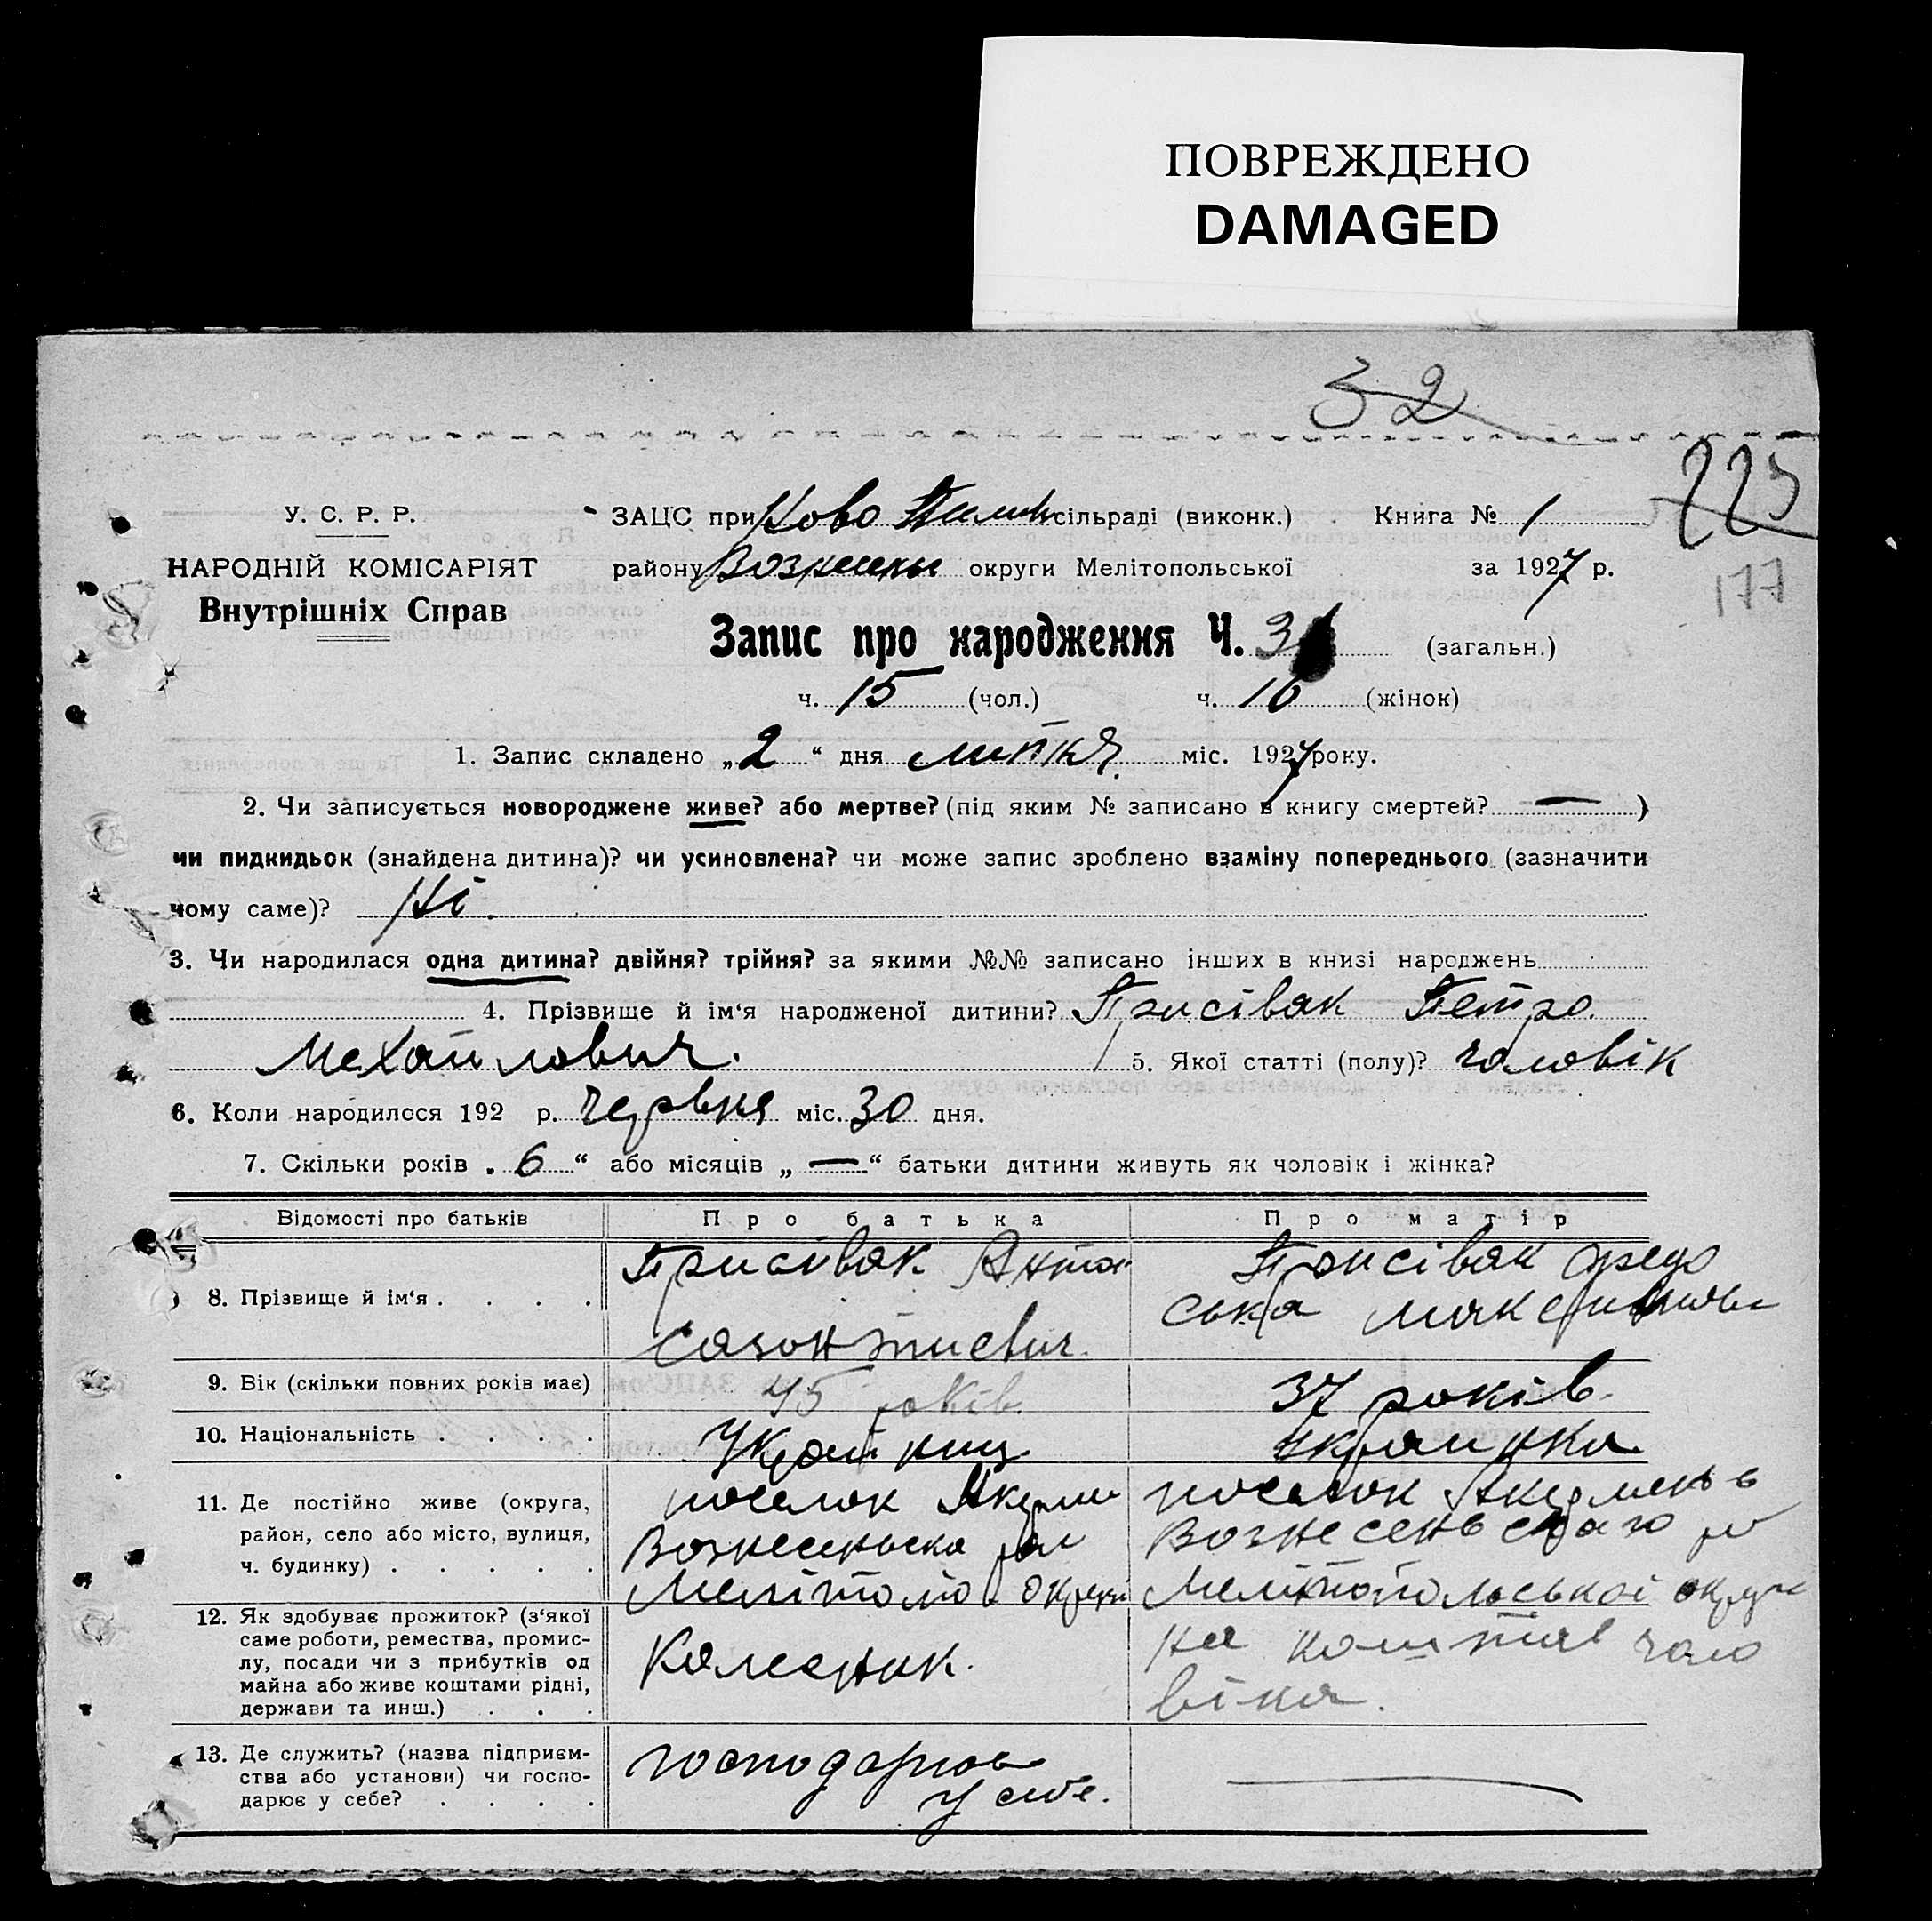 ПОВРЕЖДЕНО
DAMAGED
32
225
177
У. С. Р. Р.
НАРОДНІЙ КОМІСАРІЯТ
Внутрішніх Справ
ЗАЦС при Ново сільраді (виконк.) Книга № 1
району округи Мелітопольської за 1927 р.
Запис про народження Ч. 3 (загальн.)
ч. 15 (чол.) ч. 16 (жінок)
1. Запис складено „2“ дня липня міс. 1927 року.
2. Чи записується новороджене живе? або мертве? (під яким № записано в книгу смертей? — )
чи пидкидьок (знайдена дитина)? чи усиновлена? чи може запис зроблено взаміну попереднього (зазначити
чому саме)? Ні.
3. Чи народилася одна дитина? двійня? трійня? за якими №№ записано інших в книзі народжень
4. Прізвище й ім'я народженої дитини? Присівак Петро
Механлович. 5. Якої статті (полу)? чоловік
6. Коли народилося 192 р. червня міс. 30 дня.
7. Скільки років „6“ або місяців „—“ батьки дитини живуть як чоловік і жінка?
Відомості про батьків Про батька Про матір
8. Прізвище й ім'я . . . .
Присівак
Созонтиевич.
Присівак
ська
9. Вік (скільки повних років має) 45 років. 37 років.
10. Національність . . . . Українец Українка
11. Де постійно живе (округа,
район, село або місто, вулиця,
ч. будинку) . . . . .
поселок
Вознесенська
поселок
Мелітопольської округи
12. Як здобуває прожиток? (з'якої
саме роботи, ремества, промис-
лу, посади чи з прибутків од
майна або живе коштами рідні,
держави та инш.) . . .
Каменик.
на коштів чоло
віка.
13. Де служить? (назва підприєм-
ства або установи) чи госпо-
дарює у себе? . . . .
господарює
у себе.